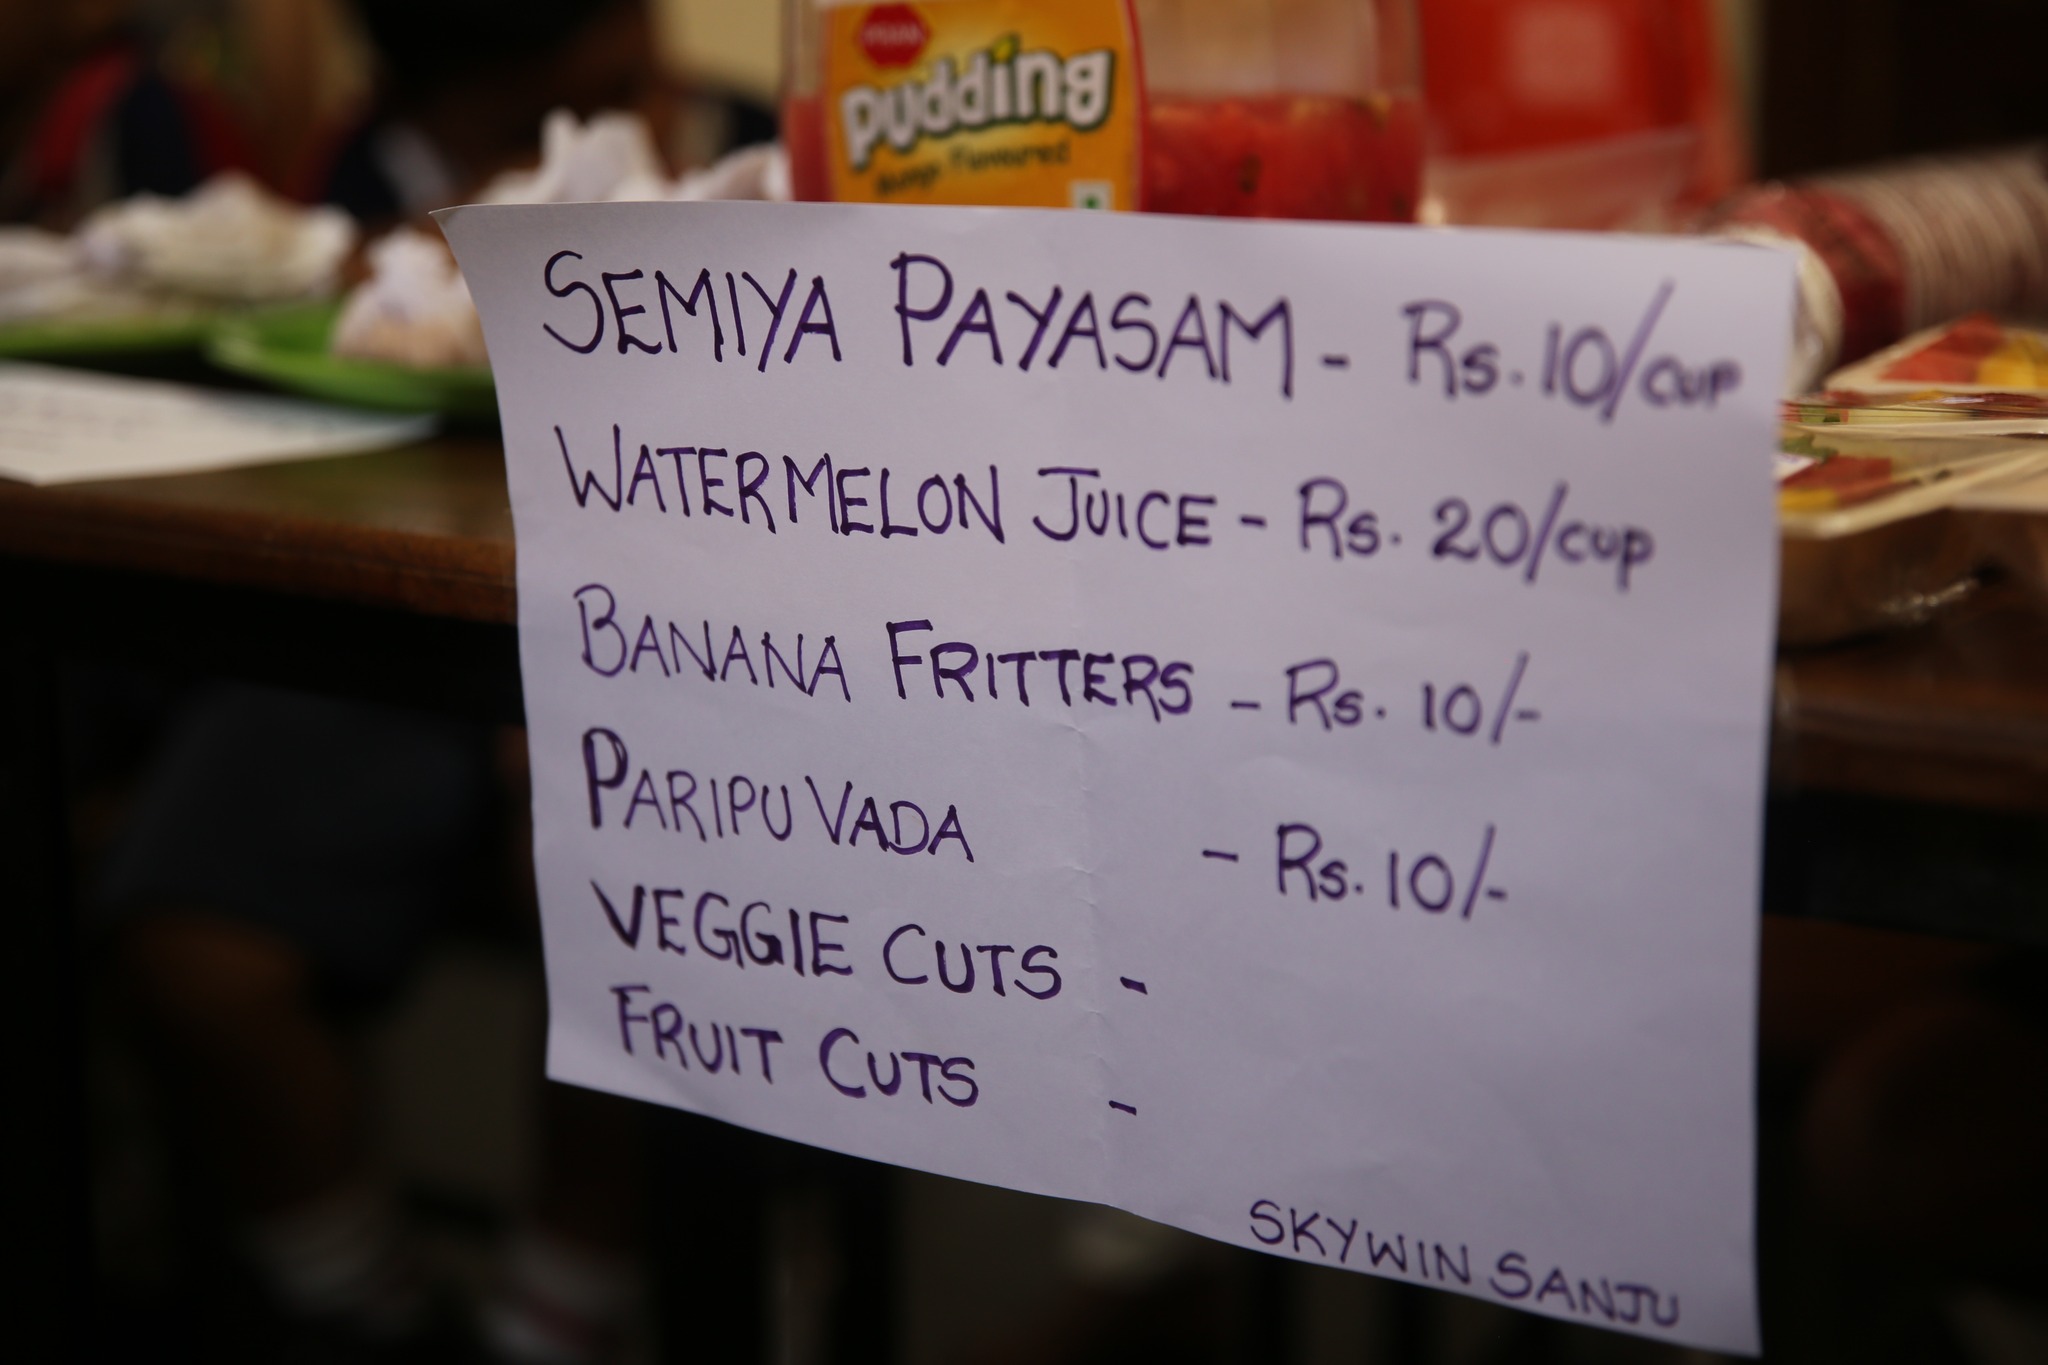 pudding
Mango Flavoured
SEMIYA PAYASAM - Rs. 10/cup
WATERMELON JUICE - Rs. 20/cup
BANANA FRITTERS - Rs. 10/-
PARIPU VADA - Rs. 10/-
VEGGIE CUTS -
FRUIT CUTS -
SKYWIN SANJU